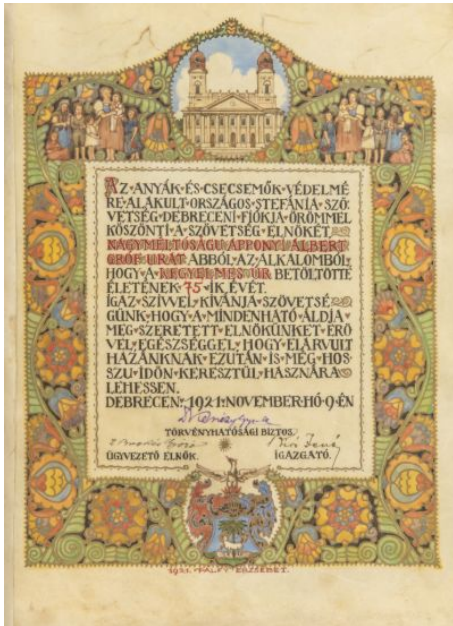 AZ·ANYÁK·ÉS·CSECSEMŐK·VÉDELMÉ
RE·ALAKULT·ORSZÁGOS·STEFÁNIA·SZÖ
VETSÉG·DEBRECENI·FIÓKJA·ÖRÖMMEL
KÖSZÖNTI·A·SZÖVETSÉG·ELNÖKÉT,
NAGYMÉLTÓSÁGU·APPONYI·ALBERT
GRÓF·URAT·ABBÓL·AZ·ALKALOMBÓL,
HOGY·A·KEGYELMES·ÚR·BETÖLTÖTTE
ÉLETÉNEK·75·IK·ÉVÉT.
IGAZ·SZIVVEL·KÍVÁNJA·SZÖVETSÉ
GÜNK·HOGY·A·MINDENHATÓ·ÁLDJA
MEG·SZERETETT·ELNÖKÜNKET·ERŐ
VEL,·EGÉSZSÉGGEL,·HOGY·ELÁRVULT
HAZÁNKNAK·EZUTÁN·IS·MÉG·HOS
SZU·IDŐN·KERESZTÜL·HASZNÁRA
LEHESSEN.
DEBRECEN,·1921·NOVEMBER·HÓ·9·ÉN
TÖRVÉNYHATÓSÁGI·BIZTOS.
ÜGYVEZETŐ·ELNÖK. IGAZGATÓ.
1921. ERZSÉBET.